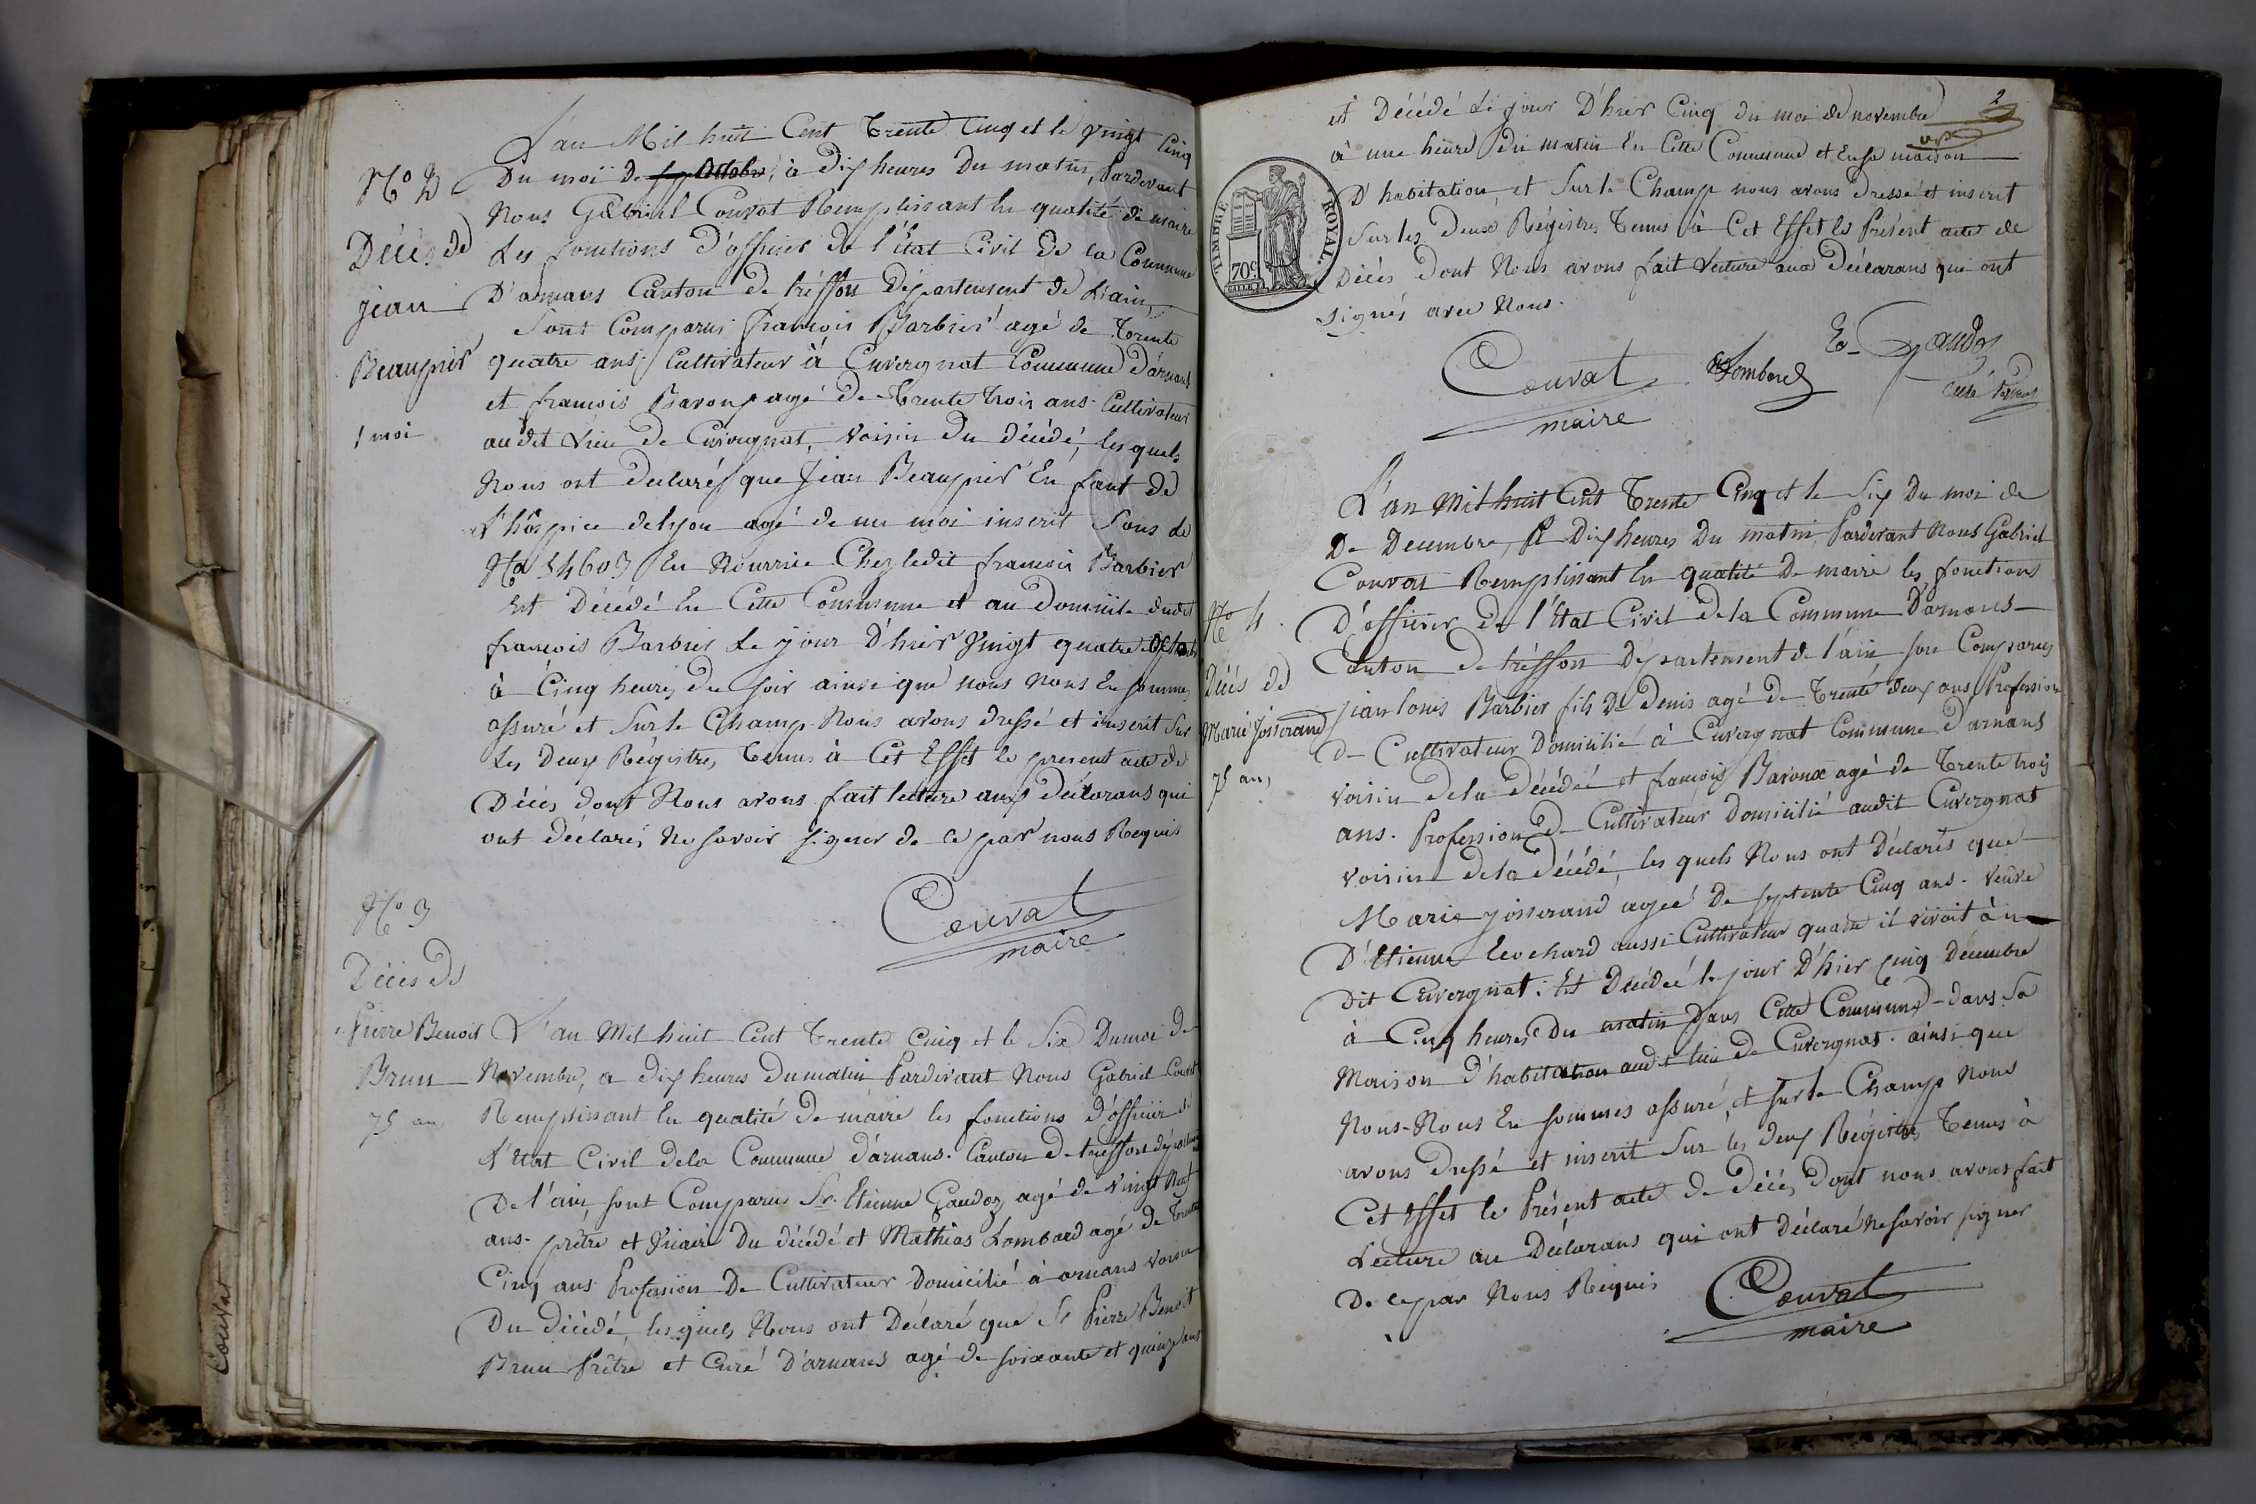 L'an Mil huit Cent Trente Cinq et le vingt Cinq
Du moi De octobre, à Dix heures Du matin, Pardevant
Nous Gabriel Couvat Remplissant En qualité de maire
Les fonctions D'officier De l'État Civil De la Commune
D'arnans Canton de tréffort Département de L'ain,
Sont Comparus françois Barbier agé de Trente
quatre ans Cultivateur à Cuvergnat Commune D'arnans
et françois Baroux agé De Trente trois ans Cultivateur
audit Lieu De Cuvergnat, voisin Du décédé, les quels
Nous ont declaré que Jean Beaupier En fant de
l'hospice de lyon agé de un moi inscrit Sous le
No 54603 En Nourrice Chez ledit francois Barbier
Est Décédé En Cette Commune et au Domicile dudit
françois Barbier Le jour D'hier Vingt quatre octobre
à Cinq heures du soir ainsi que nous Nous En sommes
assuré et Sur le Champ Nous avons dressé et inscrit Sur
Les Deux Régistres Tenus à Cet Effet le present acte de
Décès dont Nous avons fait lecture aux Déclarans qui
ont déclarés Ne savoir signer de ce par nous Requis
Couvat
maire
No 2
Décès de
jean
Beaupier
1 moi
No 3
Décès de
Pierre Benoit
Brun
75 ans
L'an Mil huit Cent Trente Cinq et le Six Du moi de
Novembre, a dix heures du matin Pardevant Nous Gabriel Couvat
Remplissant En qualité De maire les fonctions d'officier de
L'État Civil dela Commune d'arnans. Canton De treffort département
De l'ain, sont Comparus Sr. Etienne Gaudoz agé de Vingt Neuf
ans. prêtre et Vicaire Du décédé et Mathias Lombard agé De Trente
Cinq ans Profession De Cultivateur Domicilié à arnans voisin
Du décédé, les quels Nous ont Déclaré que Sr Pierre Benoit
Brun Prêtre et Curé D'arnans agé de soixante et quinze ans
2
est Décédé Le jour D'hier Cinq du moi de novembre
à une heure du matin En Cette Commune et En sa maison
D'habitation, et Sur le Champ nous avons Dressé et inscrit
Sur les Deux Régistres Tenus à Cet Effet le Présent acte de
Décès dont Nous avons fait Lecture aux Déclarans qui ont
signés avec Nous.
TIMBRE ROYAL.
70c
Couvat
maire
Lombard
E. Gaudoz
No 4
Décès de
Marie Josserand
75 ans
L'an Mil huit Cent Trente Cinq et le Six Du moi de
De Decembre, à Dix heures Du matin Pardevant Nous Gabriel
Couvat Remplissant En qualité De maire les fonctions
D'officier de l'État Civil de la Commune D'arnans
Canton de tréffort Departement de l'ain son Comparus
jean louis Barbier fils De Denis agé de Trente deux ans Profession
De Cultivateur Domicilié à Cuvergnat Commune D'arnans
voisin dela Décédée et françois Baroux agé de Trente trois
ans. Profession De Cultivateur Domicilié audit Cuvergnat
voisin dela Décédé, les quels Nous ont Déclarés que
Marie josserand agée De septente Cinq ans. veuve
D'Etienne Leochard aussi Cultivateur quand il vivoit à u
dit Cuvergnat. Est Décédée le jour D'hier Cinq Décembre
à Cinq heures Du matin Dans Cette Commune dans Sa
Maison d'habitation audit lieu de Cuvergnat. ainsi que
Nous-Nous En sommes assuré, et sur le Champ Nous
avons dressé et inscrit Sur les deux Régistres Tenus à
Cet Effet le Présent acte de Décès Dont nous avons fait
Lecture au Déclarans qui ont déclaré Ne savoir signer
De ce par Nous Requis
Couvat
maire
Couvat